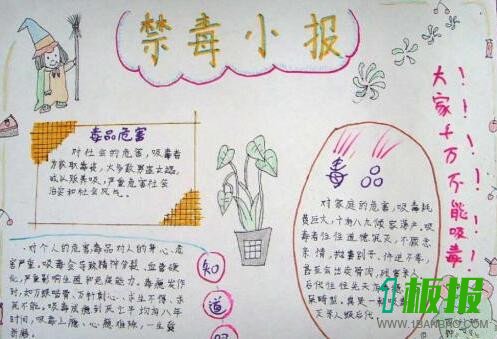 禁毒小报
毒品危害
对社会的危害,吸毒者
为获取毒资,大多数男盗女娼,
或以贩养吸,严重危害社会
治安和社会风气。
对个人的危害,毒品对人的身心危
害严重。吸毒会导致精神分裂、血管硬
化,严重影响生殖和免疫能力。毒瘾发作
时,如万蚁啃骨,万针刺心,求生不得,求
死不能。吸毒成瘾到死亡平均为八年
时间,吸毒上瘾,心瘾难除,一生
知
道
毒品
对家庭的危害,吸毒耗
费巨大,十有八九倾家荡产。吸
毒者往往道德泯灭,不顾念
亲情,抛妻别子,忤逆不孝,
甚至会出卖骨肉,残害亲人
后代往往
灭亲人毁后代。
大家千万不能吸毒!!!!
1板报
WWW.1BANBAO.COM